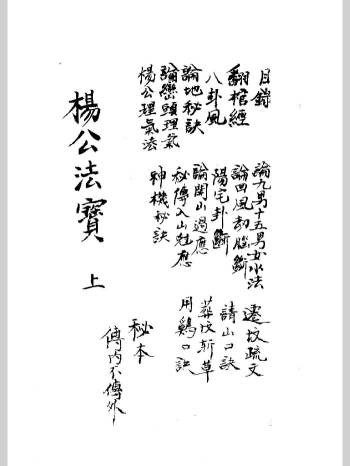 目錄
翻棺經
八卦風
論地秘訣
論巒頭理氣
楊公理氣法
論九男十五男女水法
論四風劫腦斷
陽宅卦斷
論開山過應
秘傳入山尅應
神機秘訣
遷坟疏文
請山口訣
葬坟斬草
用鷄口訣
秘本
傳內不傳外
楊公法寶 上